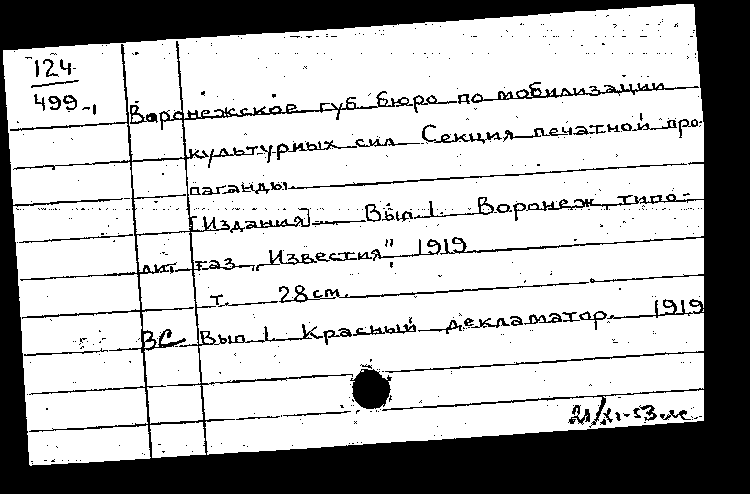 124
499-1
Воронежское губ бюро по мобилизации
культурных сил Секция печатной про-
паганды.
[Издания]. Вып 1. Воронеж, типо-
лит газ „Известия" 1919
т. 28 см.
ВС Вып 1. Красный декламатор. 1919
21/XI-53